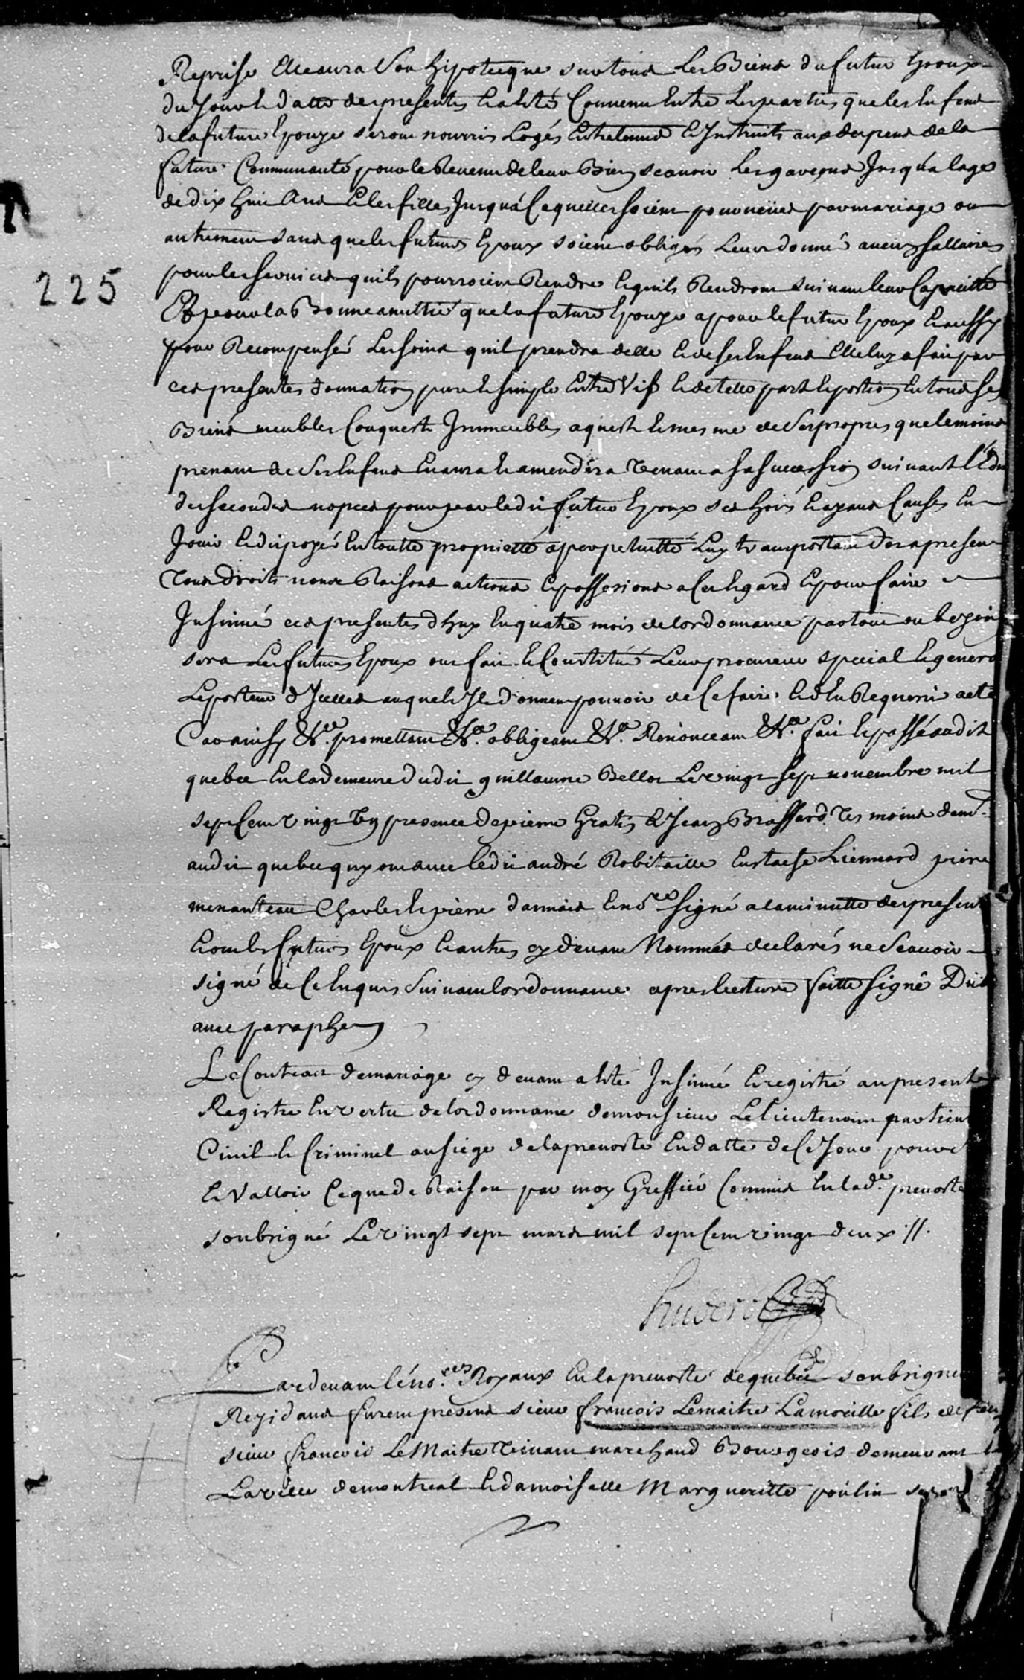 Reprise Elle aura Son hipotecque sur tous Les Biens du futur Epoux
du Jour & datte des presentes Ea Esté Convenu Entre Les parties que les Enfens
de la future Epouze seront nourris Logés Entretenus & Instruits aux depens de la
future Communauté pour le Revenu de leur Bien scavoir Les garçons Jusqu'a lage
de dix huit Ans & Les filles Jusqu'a Ce quelles soient pourveües par mariage ou
autrement sans que les futurs Epoux soient obligés Leur donné aucuns sallaires
225
pour les services quils pourroient Rendre & quils Rendront suivant leur Capacitté
Et pour la Bonne amittié que la future Epouze a pour le futur Epoux & aussy
pour Recompensé Les soins quil prendra delle & de ses Enfens Elle luy a fait par
ces presentes donnation pure & simple Entre Vifs & de telle part & portion En tous ses
Biens meubles Conquests Immeubles aquests & mesme de Ses propres que le moins
prenant de Ses Enfens En aura & amendera venant a sa succession suivant l'Edit
des secondes nopces pour par le dit futur Epoux ses hoirs & ayans Causes En
Jouir & disposé En toutte proprietté a perpetuitté Luy transportant des apresent
Tous droits noms Raisons actions & possessions a Cet Egard & pour faire
Insinué ces presentes dhuy En quatre mois de lordonnance partout ou besoin
sera Les futurs Epoux ont fait & Constitué Leur procureur special & general
Le porteur d'Icelles auquel Ils donnent pouvoir de Ce faire & d'En Requerir acte
Car ainsy &c.ª promettant &c.ª obligeant &c.ª Renonceant &c.ª fait & passé audit
quebec En la demeure dudit guillaume Bellot Le vingt sept novembre mil
sept Cent vingt Un presence de pierre Gratis & Jean Brassard Tesmoins dem.t
audit quebec quy ont avec ledit andré Robitaille Eustache Liennard pierre
menanteau Charles & pierre dannais & no.re signé a la minutte des presentes
& ont les futurs Epoux & autres cy devant Nommés declarés ne Scavoir
signé de Ce Enquis Suivant lordonnance apres lecture faitte signé
avec paraphe
Le Contract de mariage cy devant a Esté Insinué & registré au present
Registre En vertu de lordonnance de monsieur Le lieutenant particulier
Civil & Criminel au siege de la prevosté En datte de Ce Jour pour
& Valloir Ce que de Raison par moy Greffier Commis En lad.e prevosté
soubsigné Le vingt sept mars mil sept Cent vingt deux //.
Pardevant les no.res Royaux En la prevosté de quebec soubsignés
Residans furent presens sieur francois Lemaitre Lamorille fils de feu
sieur francois LeMaitre vivant marchand Bourgeois demeurant
La ville de montreal & damoiselle Marguerite poulin